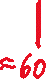 ≈60